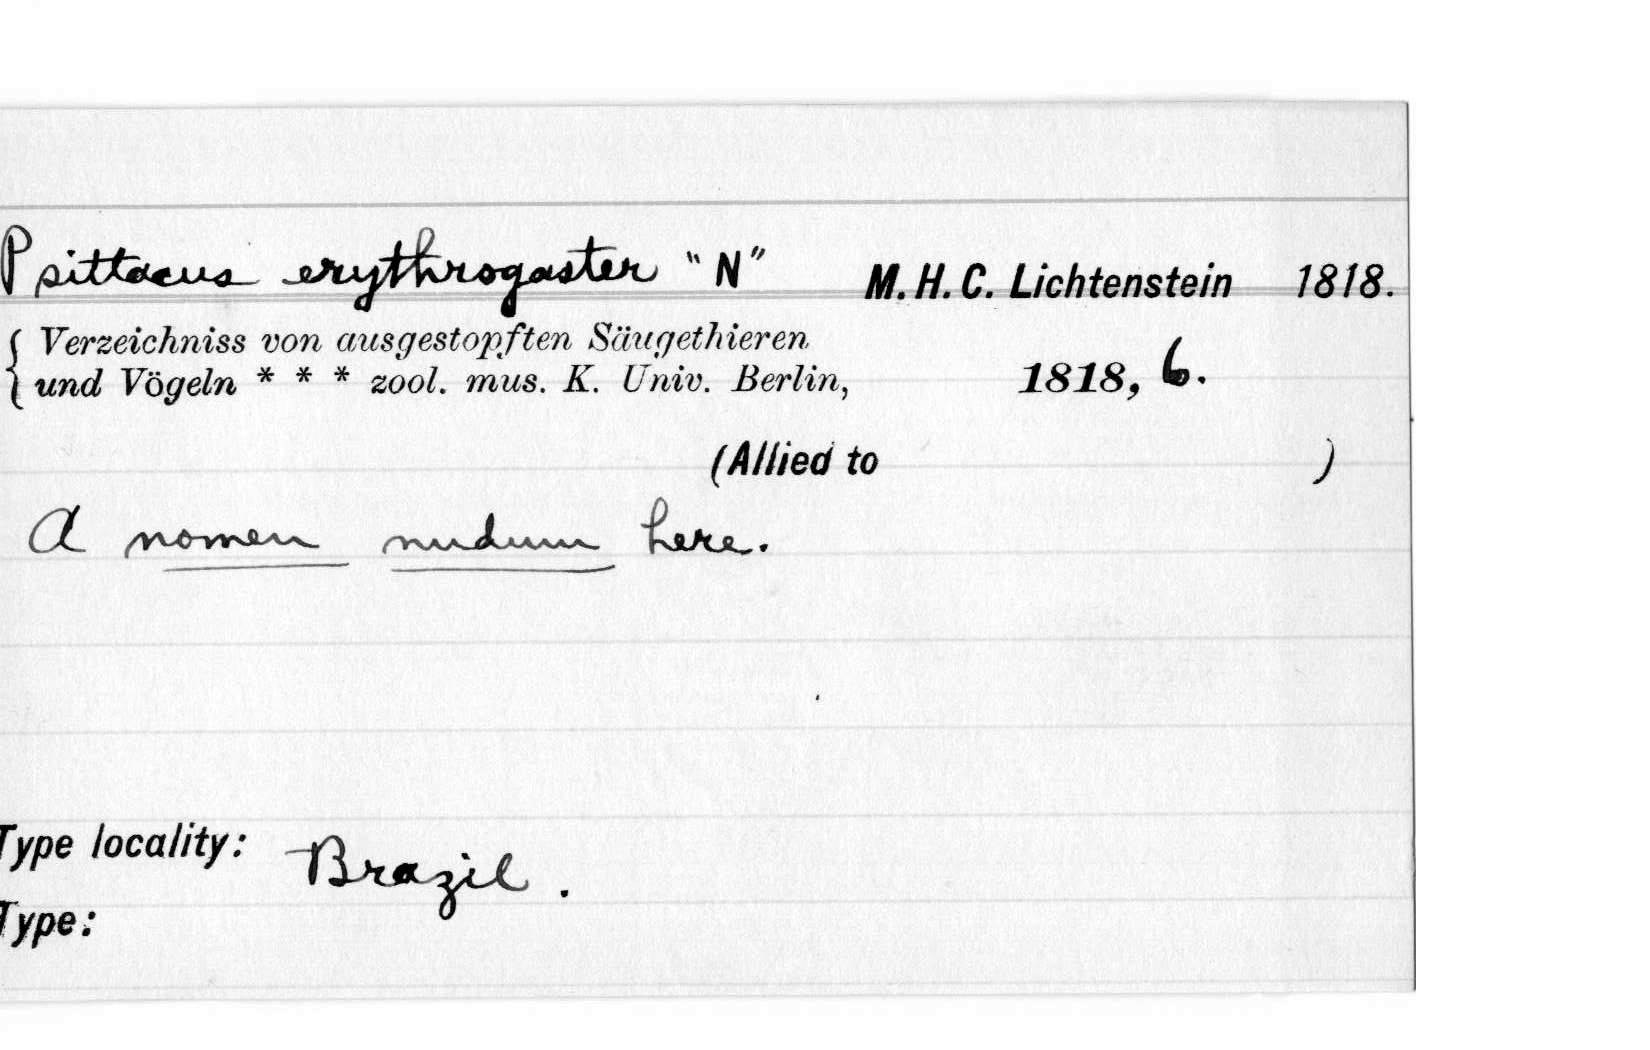 Psittacus erythrogaster "N" M. H. C. Lichtenstein 1818.
{ Verzeichniss von ausgestopften Säugethieren
und Vögeln * * * zool. mus. K. Univ. Berlin, 1818, 6.
(Allied to )
A nomen nudum here.
Type locality: Brazil.
Type: